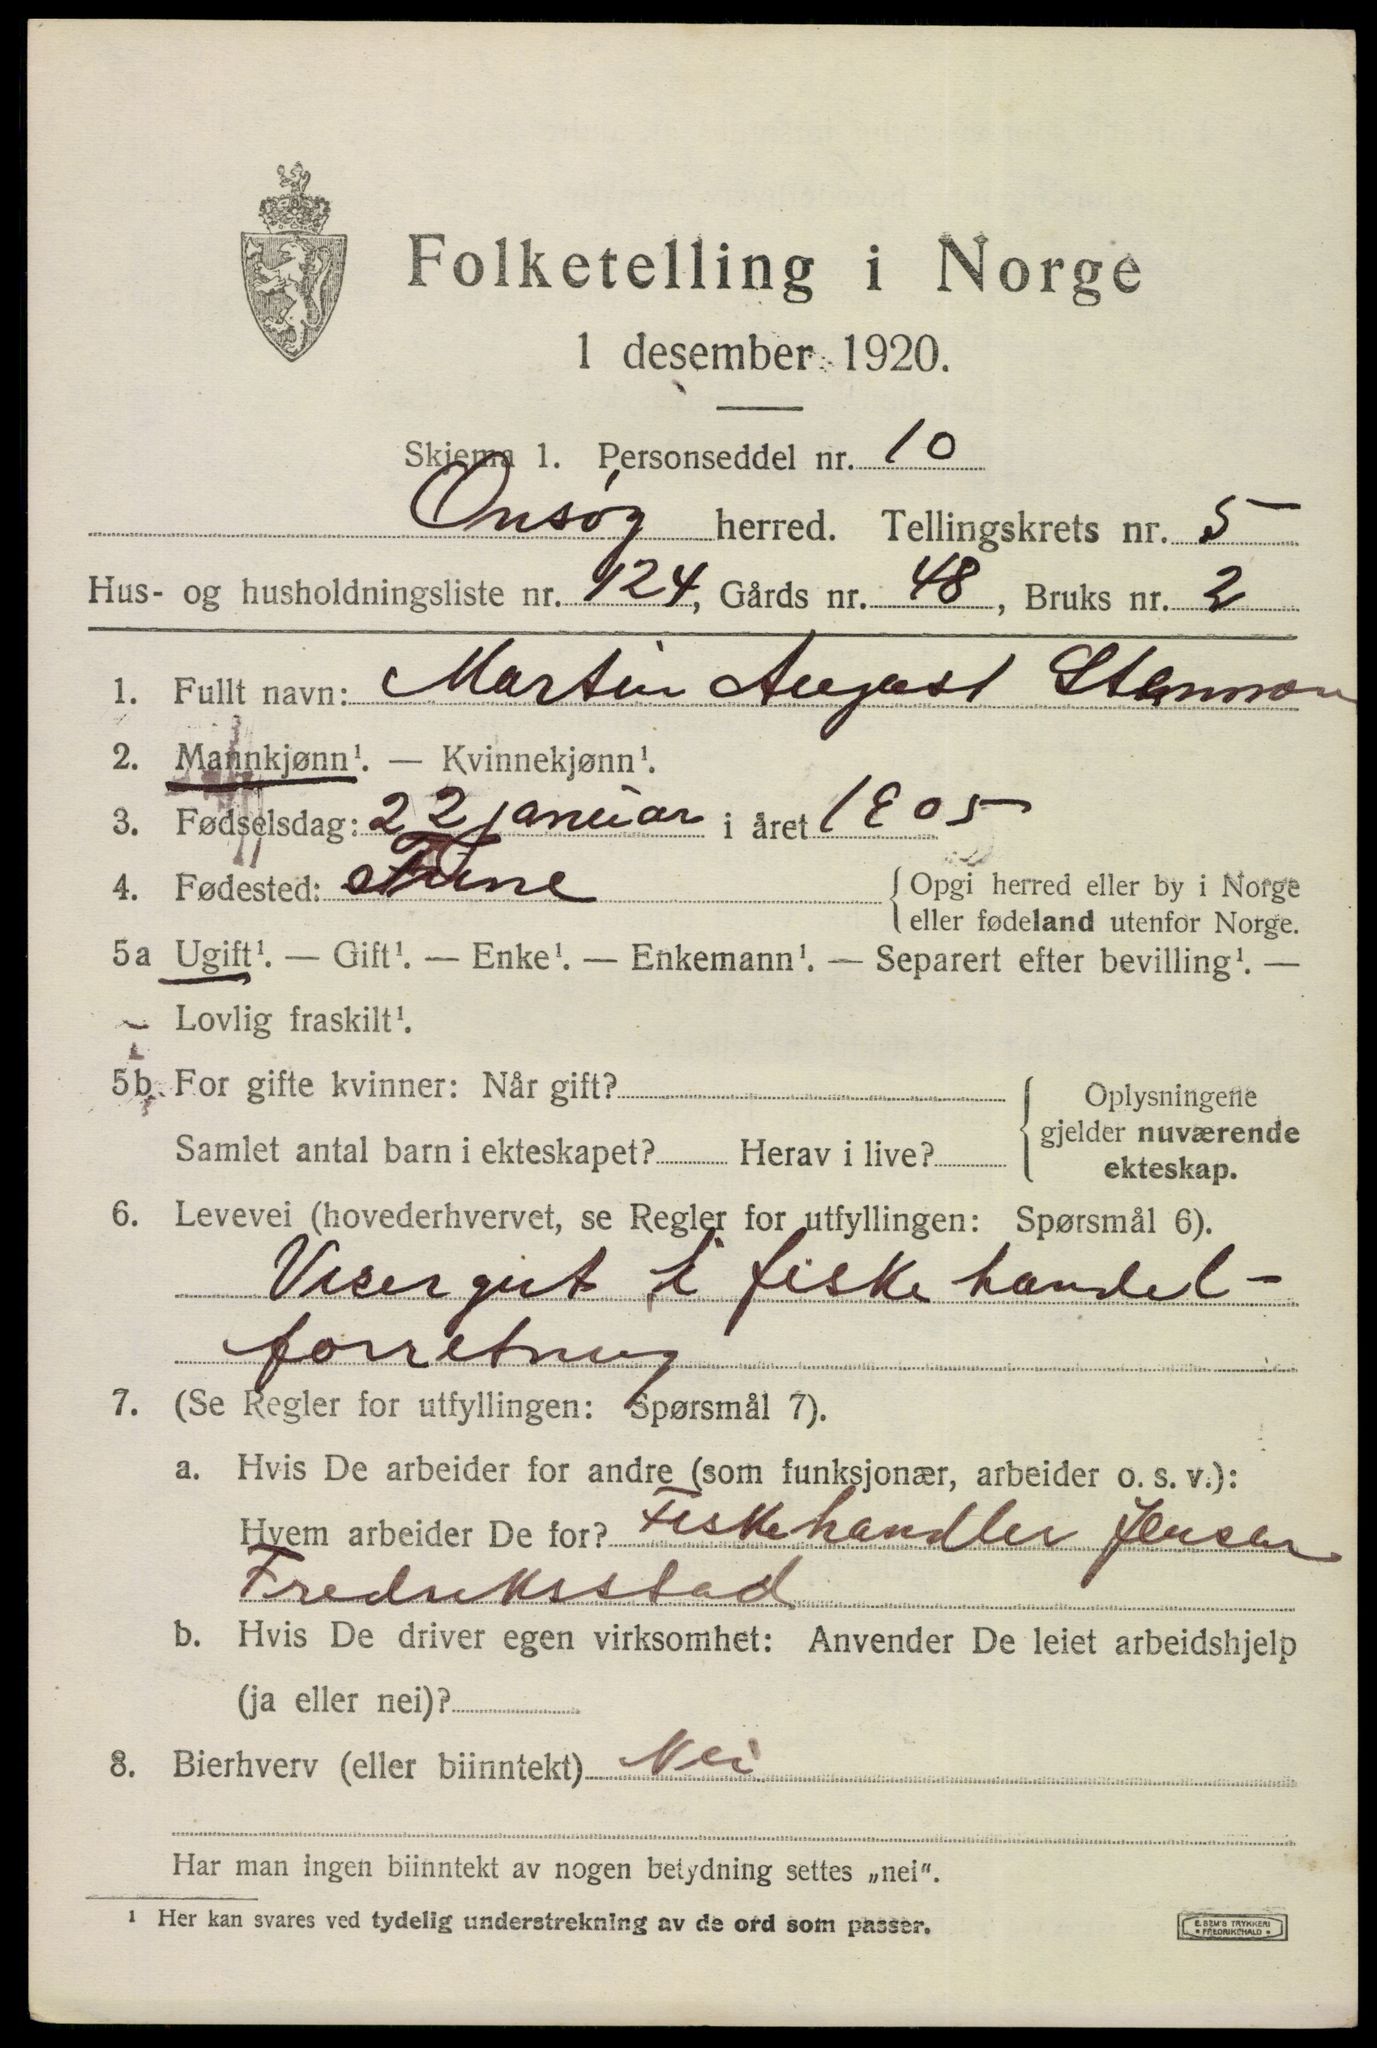 Folketelling i Norge
1 desember 1920.
Skjema 1. Personseddel nr. 10
Onsøy herred. Tellingskrets nr. 5
Hus- og husholdningsliste nr. 124, Gårds nr. 48, Bruks nr. 2
1. Fullt navn: Martin August
2. Mannkjønn¹. — Kvinnekjønn¹.
3. Fødselsdag: 22 januar i året 1905
4. Fødested: Tune {Opgi herred eller by i Norge
eller fødeland utenfor Norge.
5a Ugift¹. — Gift¹. — Enke¹. — Enkemann¹. — Separert efter bevilling¹. —
Lovlig fraskilt¹.
5b. For gifte kvinner: Når gift?
Samlet antal barn i ekteskapet? Herav i live?
{Oplysningene
gjelder nuværende
ekteskap.
6. Levevei (hovederhvervet, se Regler for utfyllingen: Spørsmål 6).
Visergut i fiskehandel-
forretning
7. (Se Regler for utfyllingen: Spørsmål 7).
a. Hvis De arbeider for andre (som funksjonær, arbeider o. s. v.):
Hvem arbeider De for? Fiskehandler Jensen
Fredriksstad
b. Hvis De driver egen virksomhet: Anvender De leiet arbeidshjelp
(ja eller nei)?
8. Bierhverv (eller biinntekt) Nei
Har man ingen biinntekt av nogen betydning settes „nei".
¹ Her kan svares ved tydelig understrekning av de ord som passer.
E. SEM'S TRYKKERI
FREDRIKSHALD